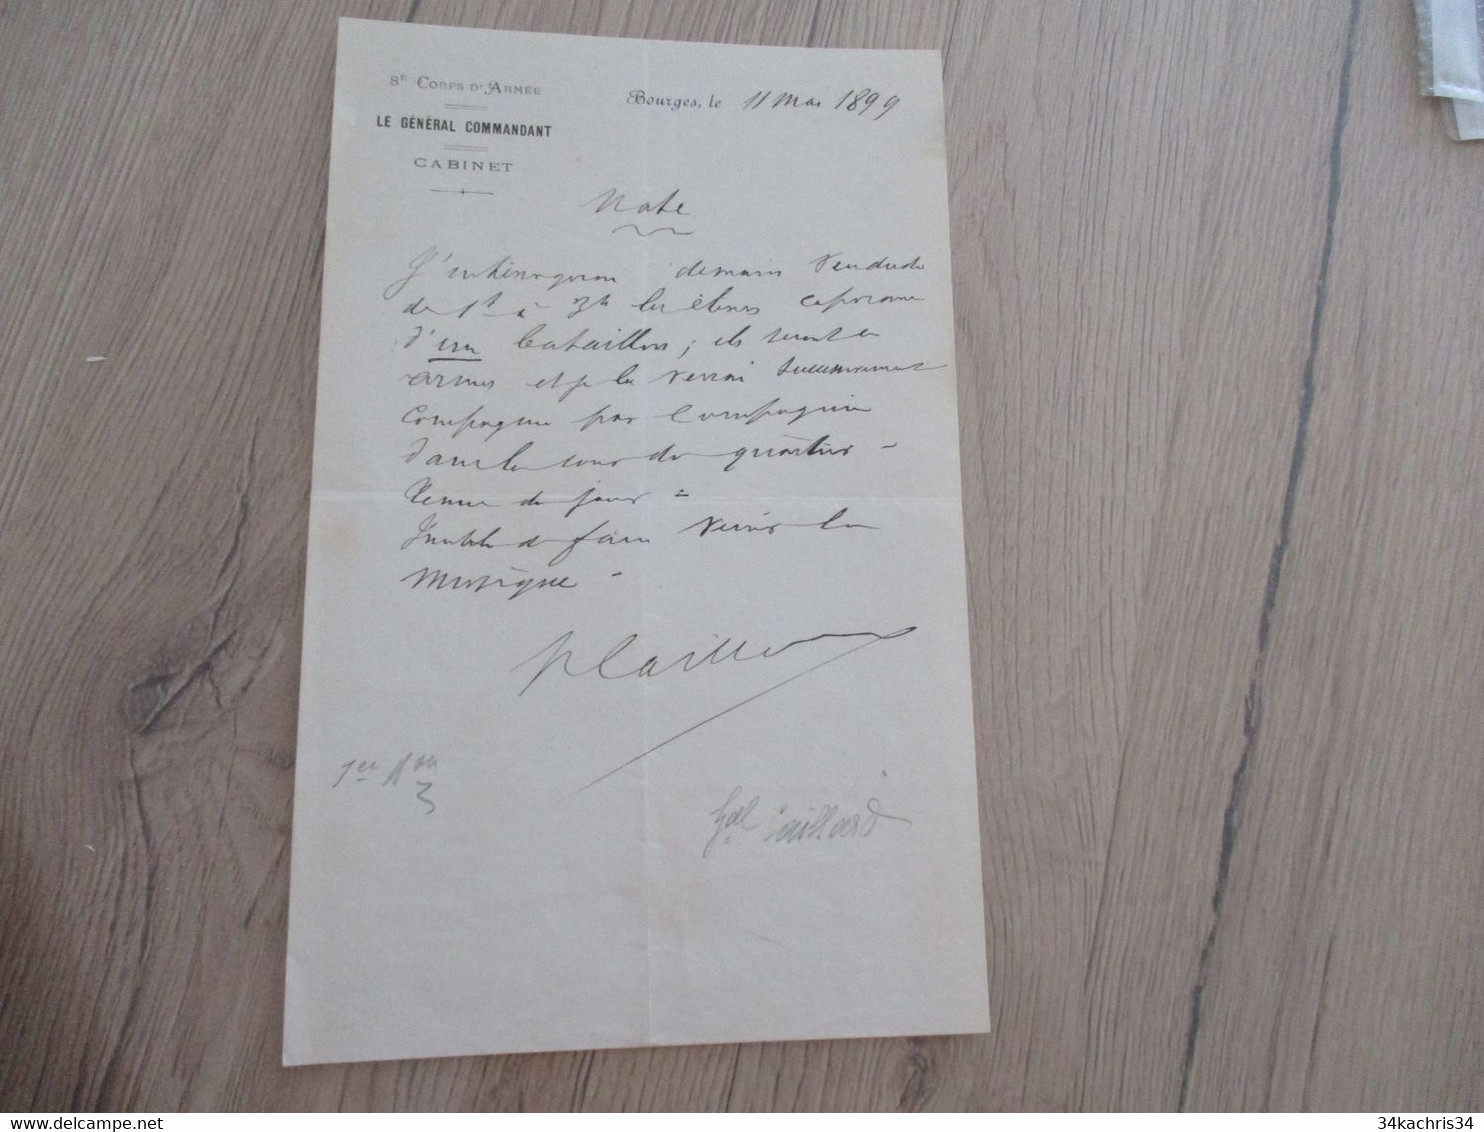 8E CORPS D'ARMÉE
LE GÉNÉRAL COMMANDANT
CABINET
Bourges, le 11 Mai 1899
Note
J'interrogerai demain Vendredi
de 1h à 3h les élèves caporaux
d'un bataillon; ils seront en
armes et je les verrai successivement
Compagnie par Compagnie
dans la cour du quartier -
Tenue de jour -
Inutile de faire venir la
musique -
Gal Caillard
34kachris34